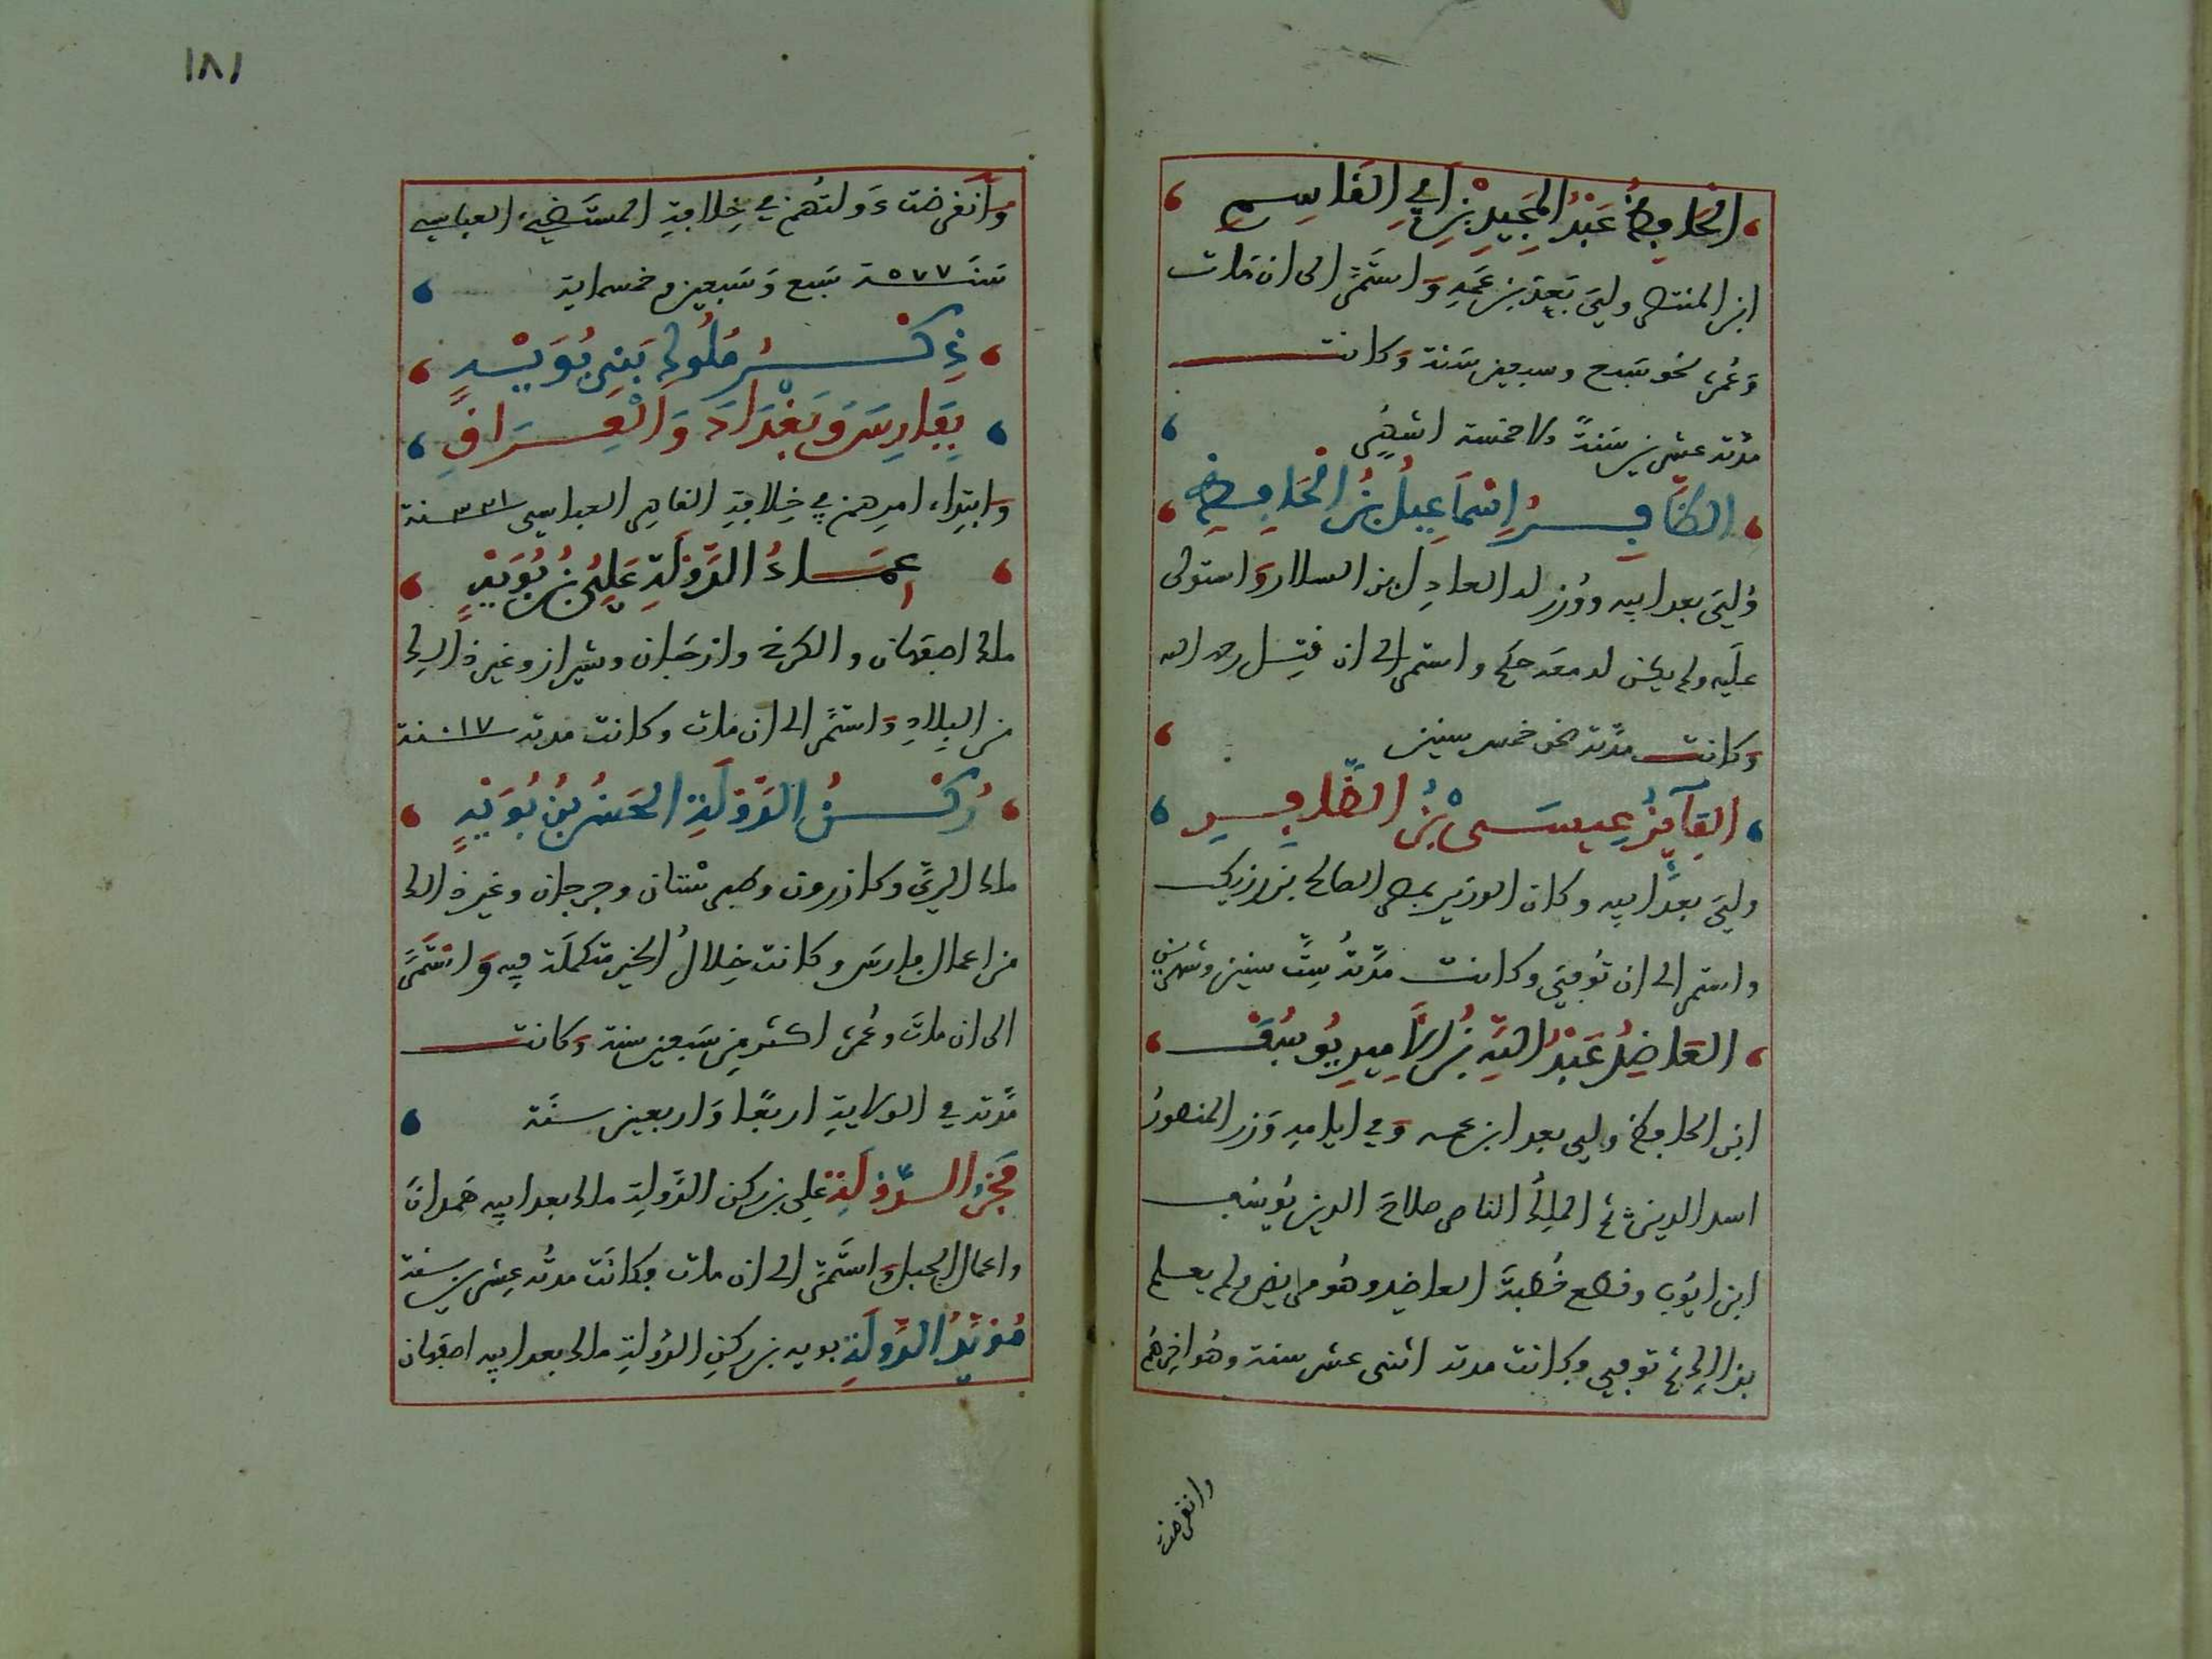 الحافظ عَبْدُ المَجِيدِ بْنِ أَبِي القَاسِمِ
ابن المنتصر وليَ بَعدَ بن عَمهِ وَاستَمَرَّ الى ان مَات
وَعُمرُه نحو سَبع وسبعين سَنة وَكانت
مدّته عشرين سَنةً الا خمسة اشهُرٍ
الظَّافِرُ اِسْمَاعِيلُ بْنُ الحَافِظِ
وُليَ بعد ابيه ووُزر له العادِل بن السلار وَاستولى
علَيه ولم يكن له معَه حكم واستمر الى ان قتِل رحمه الله
وَكانت مدّته نحو خمس سنين
الفَآيِزُ عِيسَى بْنُ الظَّافِرِ
وليَ بعدَ ابيه وكان الوزير بمصر الصالح بن رزيك
واستمر الى ان تُوفيَ وكانت مدّتُه سِتَّ سنين وشهرين
العَاضِدُ عَبْدُ اللهِ بْنُ الأَمِيرِ يُوسُفَ
ابن الحافظ ولي بعد ابن عمه وَفي ايامهِ وَزر المنصورُ
اسد الدين ثم الملِكُ الناصر صلاحَ الدين يُوسُف
ابن ايُّوب وقطع خُطبةَ العاضِد وهُو مريض ولم يعلم
بذالك ثم توفي وكانت مدته اثنى عشر سنة وهُو اخِرهُم
وانقرضت
١٨١
وَانقَرضت دَولتُهم في خِلافةِ المستَضيء العباسي
سَنَة ٥٧٧ سَبع وَسَبعين وخمسماية
ذِكْرُ مُلُوكِ بَنِي بُوَيْهِ
بِفَارِسَ وَبَغْدَادَ وَالْعِرَاقِ
وَابتِداء امرِهم في خِلافةِ القاهر العباسي ٣٣١ سنة
عِمَادُ الدَّوْلَةِ عَلِيُّ بْنُ بُوَيْهِ
ملك اصفهان والكرخ وارجَان وشيراز وغير ذالك
من البِلادِ وَاستمَر الى ان مات وكانت مدته ١٧ سنة
رُكْنُ الدَّوْلَةِ الحَسَنُ بْنُ بُوَيْهِ
ملك الريّ وكازرون وطبرستان وجرجان وغير ذالك
من اعمال فارسَ وكانت خِلالُ الخير متكملَة فيه وَاستَمَرَّ
الى ان ماتَ وعُمرُه اكثر مِن سَبعين سنة وَكانت
مدّته في الولايةِ اربعًا وَاربعين سنَة
فَخْرُ الدَّوْلَةِ علي بن ركن الدَّولةِ ملك بعد ابيه همدانَ
واعمال الجبل وَاستَمرَّ الى ان مات وكانَت مدتُه عِشرين سنة
مُؤَيِّدُ الدَّولَةِ بويه بن ركنِ الدَّولةِ ملك بعد ابيه اصفهان